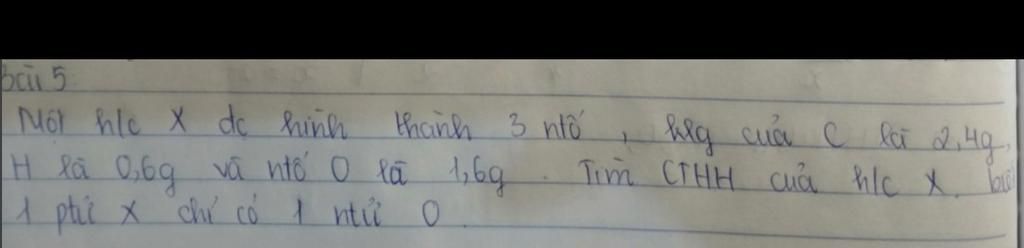 bài 5.
Một h/c X đc hình thành 3 ntố, klg của C là 2,4g,
H là 0,6g và ntố O là 1,6g. Tìm CTHH của h/c X. biết
1 ptử X chỉ có 1 ntử O.